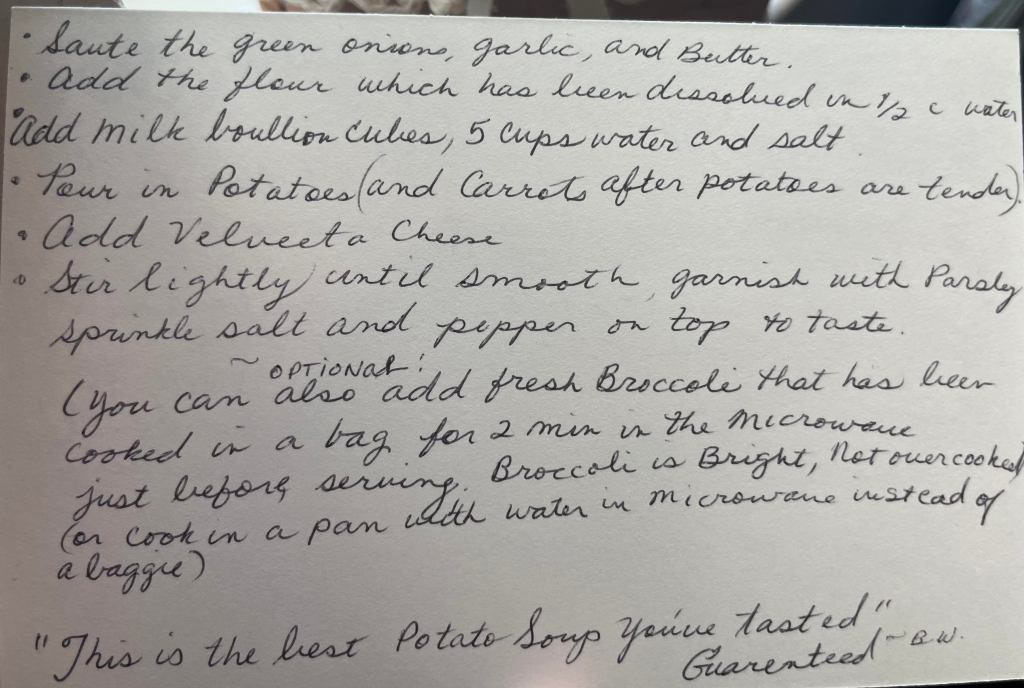 • Saute the green onions, garlic, and Butter.
• Add the flour which has been dissolved in 1/2 c water
• Add milk boullion cubes, 5 cups water and salt
• Pour in Potatoes (and Carrots after potatoes are tender).
• Add Velveeta Cheese
• Stir lightly until smooth, garnish with Parsley
sprinkle salt and pepper on top to taste.
~ OPTIONAL!
(you can also add fresh Broccoli that has been
cooked in a bag for 2 min in the microwave
just before serving. Broccoli is Bright, Not overcooked
(or cook in a pan with water in microwave instead of
a baggie)
"This is the best Potato Soup You've tasted"
Guarenteed ~ B.W.